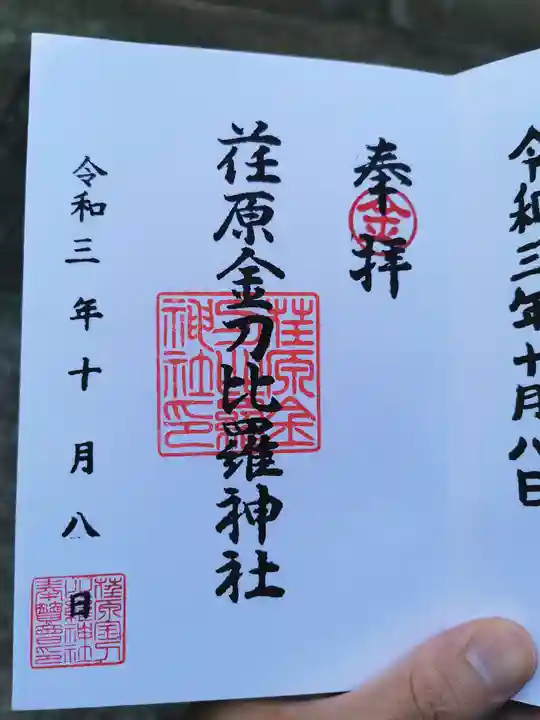 令和三年十月八日
奉拝
金
荏原金刀比羅神社
荏原金刀比羅神社印
令和三年十月八日
荏原金刀比羅神社奉賛会印